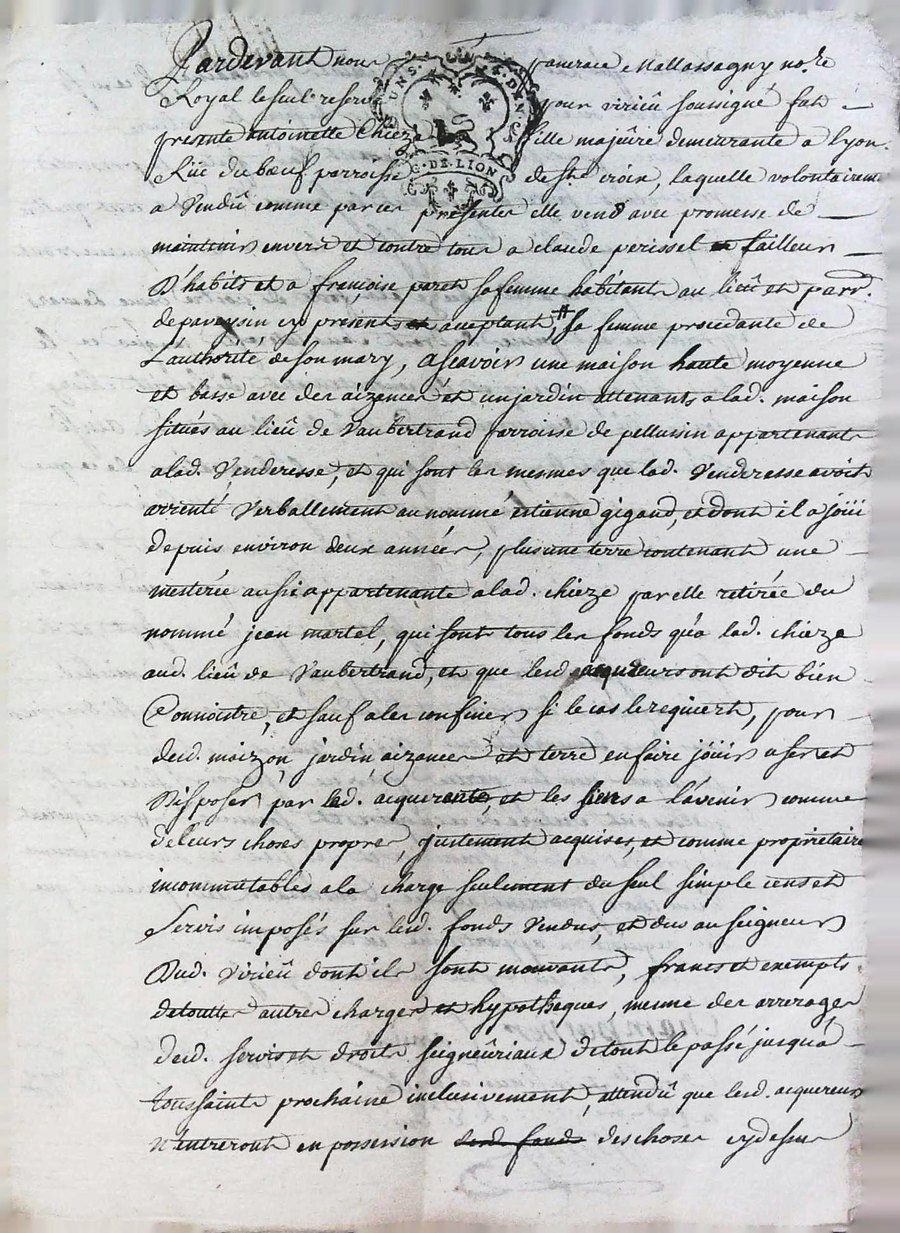 Pardevant nous pancrace Mallassagny no.re
Royal le seul reservé pour virieû soussigné fût
presente antoinette Chieze fille majeûre demeurante a Lyon
Rûe du bœuf parroisse de ste. croix, laquelle volontairement
a Vendû comme par ces presentes elle vend avec promesse de
maintenir envers et contre tous a claude perissel tailleur
D'habits et a françoise paret sa femme habitants au lieû et parr.
de paveysin cy presents et acceptants, # sa femme procedante de
L'authorité de son mary, ascavoir une maison haute moyenne
et basse avec des aizances et un jardin attenants a lad. maison
situés au lieû de Vaubertrand parroisse de pellussin appartenants
a lad. Venderesse, et qui sont les mesmes que lad. Venderesse avoit
arrenté Verballement au nommé estienne gigaud, et dont il a joüi
depuis environ deux années, plus une terre contenant une
mesterée aussi appartenante a lad. chieze par elle retirée du
nommé jean martel, qui sonts tous les fonds qu'a lad. chieze
aud. lieû de Vaubertrand, et que lesd. acquereurs ont dit bien
Connoistre, et sauf a les confiner si le cas le requiert, pour
desd. maizon, jardin aizances et terre en faire joüir user et
Disposer par lesd. acquerants, et les siens a l'avenir comme
de leurs choses propres, justement acquises, et comme proprietaires
incommutables a la charge seulement du seul simple cens et
Servis imposés sur lesd. fonds Vendus, et dus au seigneur
Dud. Virieû dont ils sont mouvants, francs et exempts
de touttes autres charges et hypotheques, mesme des arrerages
desd. servis et droits seigneûriaux de tout le passé jusqu'a
toussaints prochaine inclusivement, attendû que lesd. acquereurs
n'entreront en possession lesd. fonds des choses cy dessus
UNS G. DEN. 8
G. DE LION